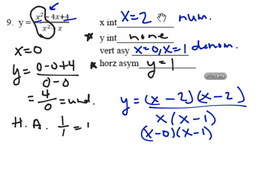 9. y = x² - 4x + 4 / x² - x
x int x = 2 num.
y int none
vert asy x = 0, x = 1 denom.
horz asym y = 1
x = 0
y = 0 - 0 + 4 / 0 - 0
= 4/0 = und.
H. A. 1/1 = 1
y = (x - 2)(x - 2) / x (x - 1)
(x - 0)(x - 1)